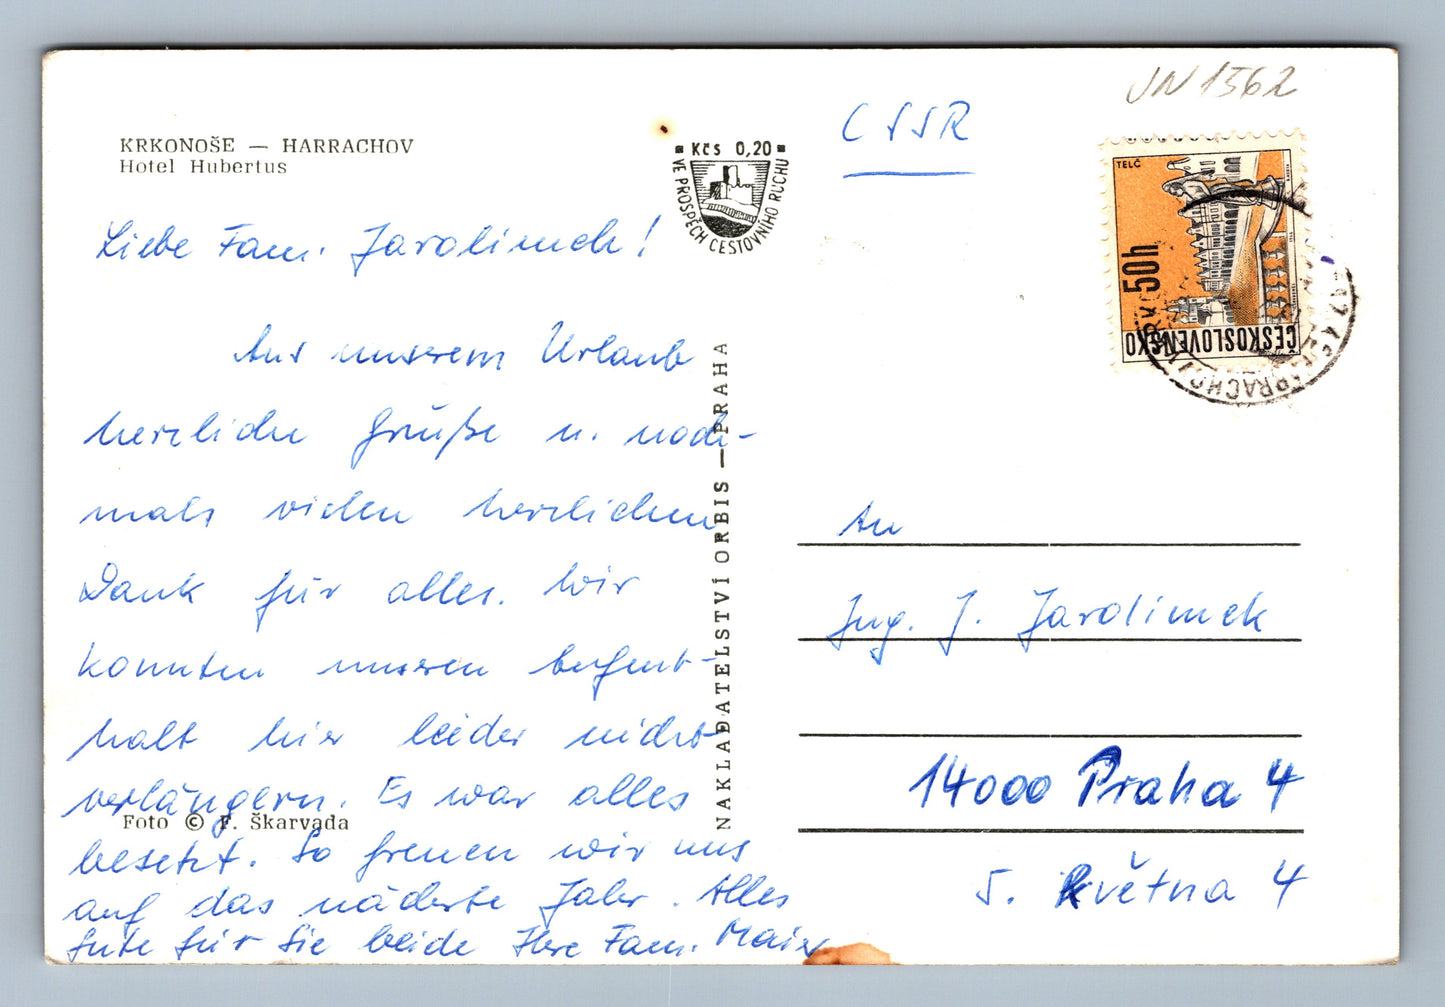 KRKONOŠE — HARRACHOV
Hotel Hubertus
Liebe Fam. Jarolimek!
Aus unserem Urlaub
herzliche Grüße u. noch-
mals vielen herzlichen
Dank für alles. Wir
konnten unseren Aufent-
halt hier leider nicht
verlängern. Es war alles
besetzt. So freuen wir uns
auf das nächste Jahr. Alles
Gute für Sie beide Ihre Fam. Maier
Foto © F. Škarvada
NAKLADATELSTVÍ ORBIS — PRAHA
Kčs 0,20
VE PROSPĚCH CESTOVNÍHO RUCHU
ČSSR
UN 1562
TELČ
50h
ČESKOSLOVENSKO
HARRACHOV
An
Ing. J. Jarolimek
14000 Praha 4
5. Května 4